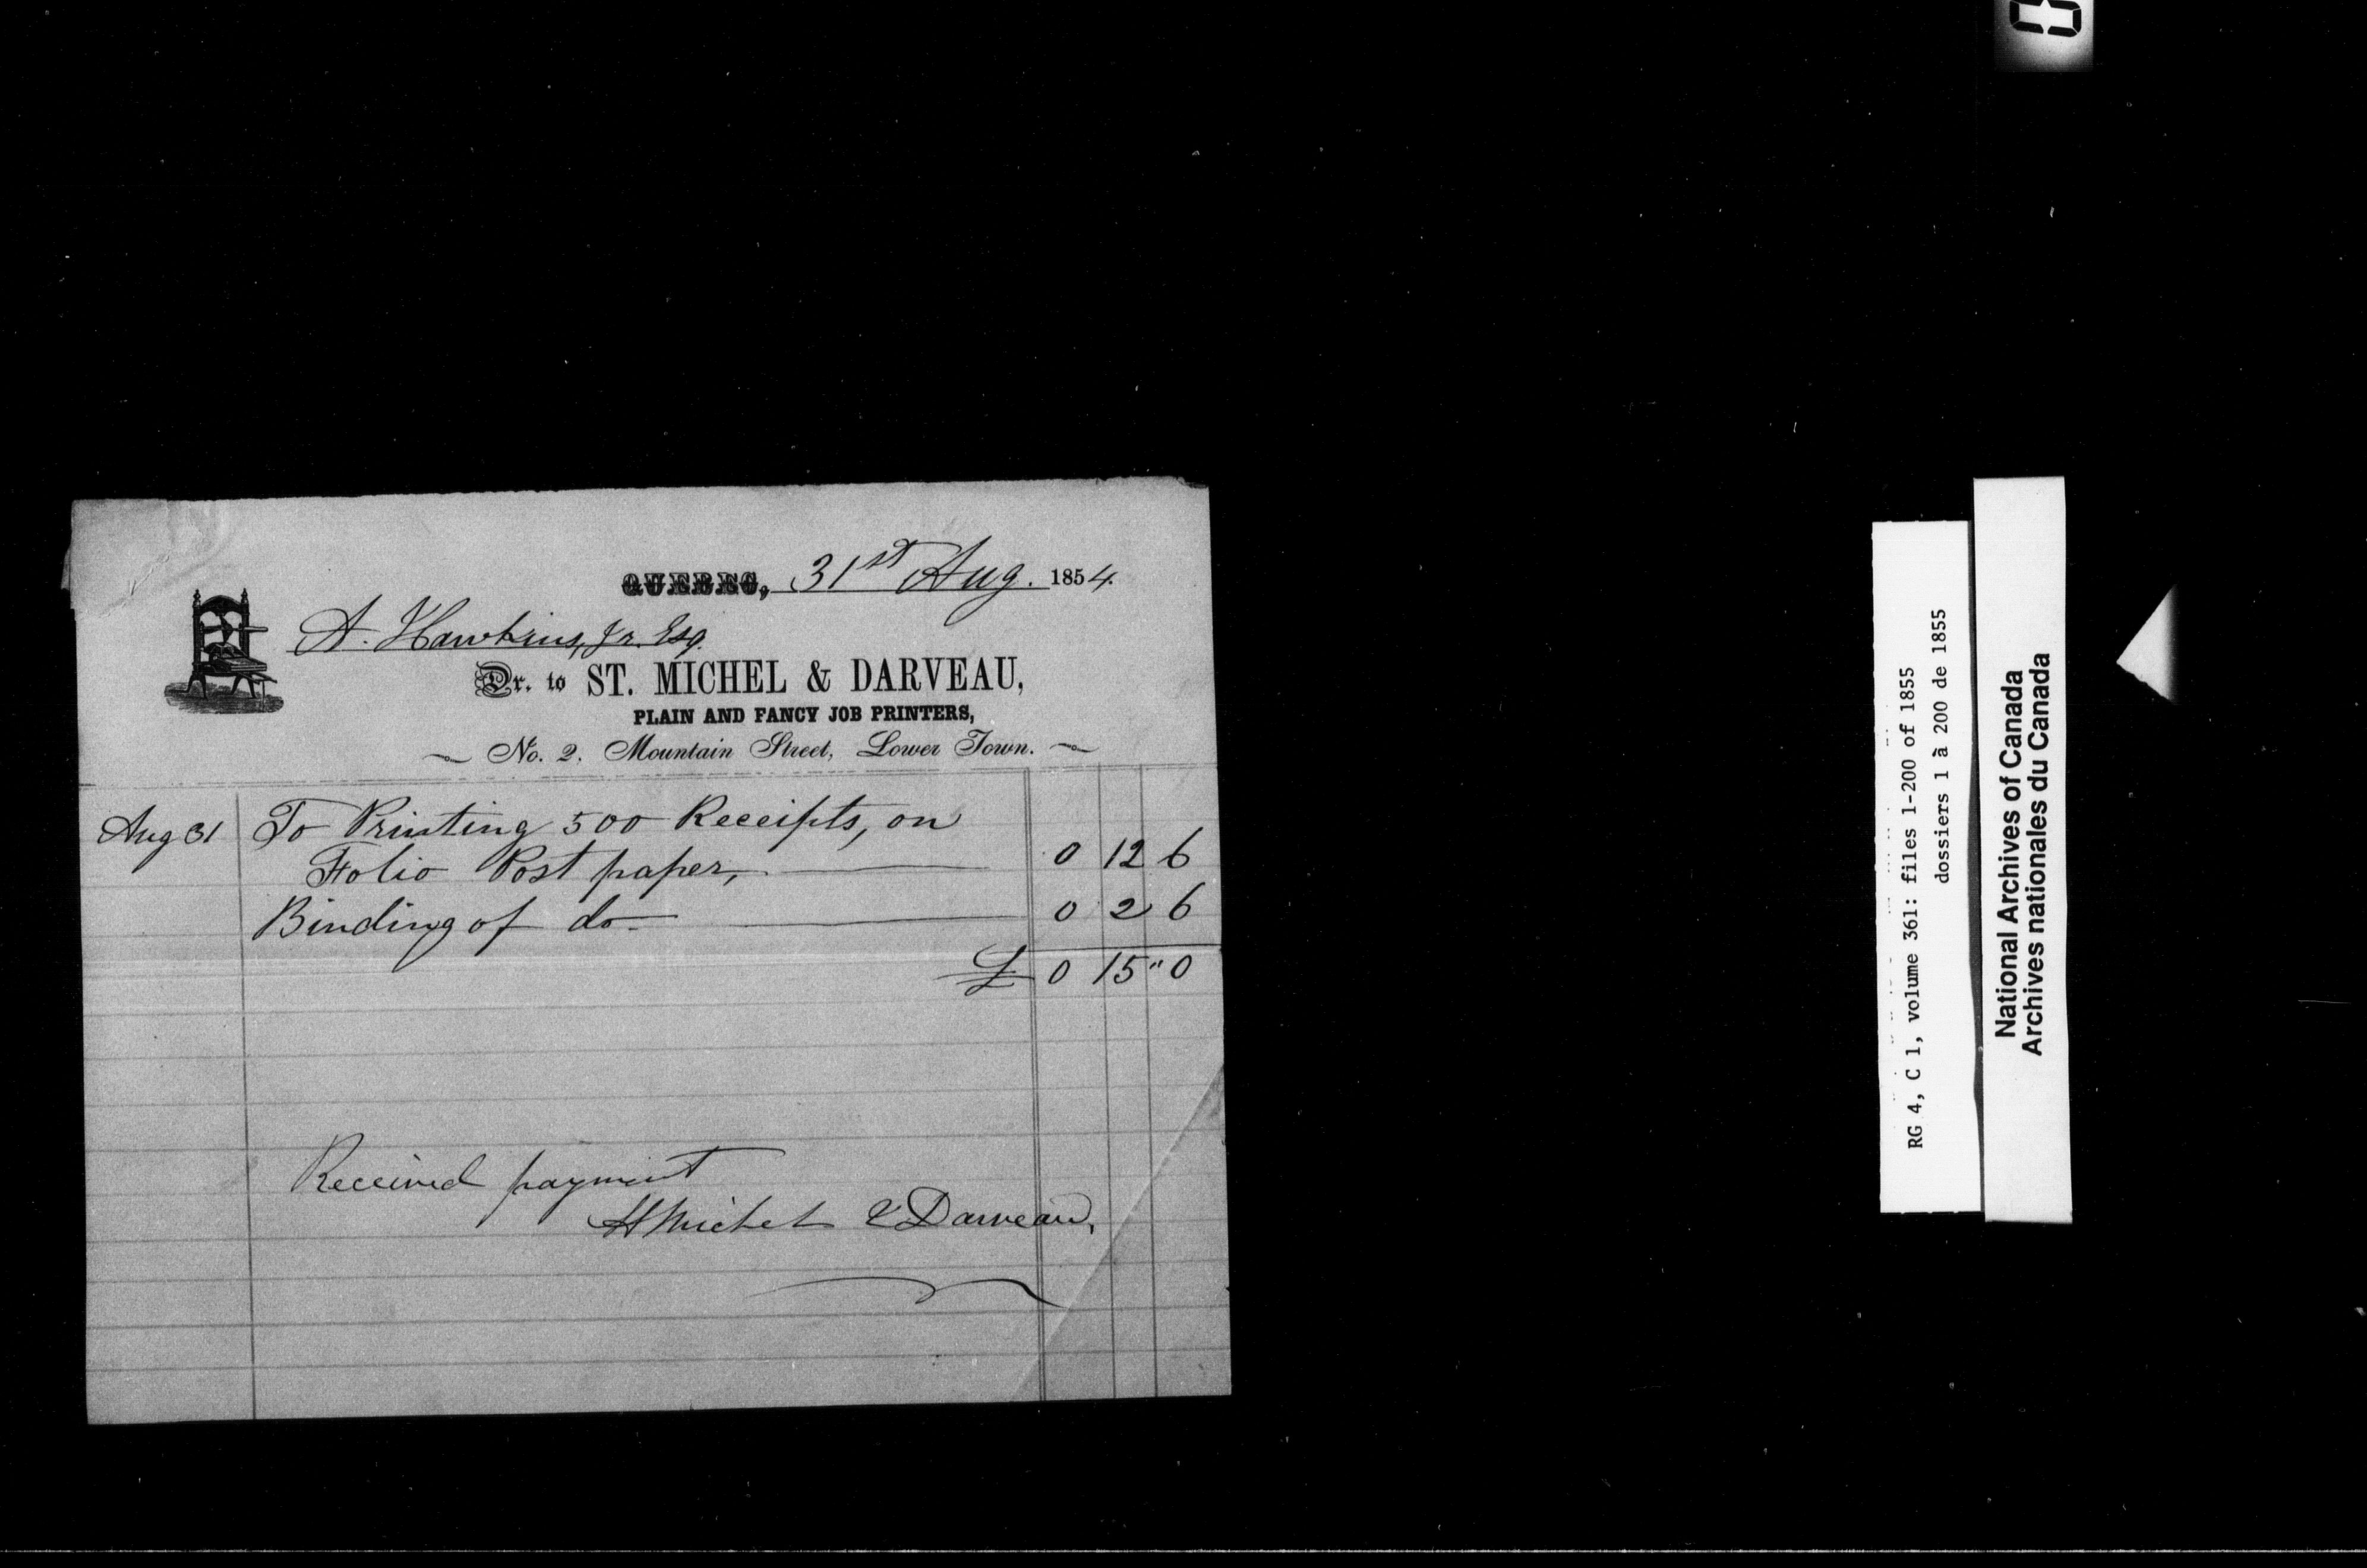 QUEBEC, 31st Aug. 1854.
A. Hawkins, Jr. Esq.
Dr. to ST. MICHEL & DARVEAU,
PLAIN AND FANCY JOB PRINTERS,
No. 2. Mountain Street, Lower Town.
Aug 31 To Printing 500 Receipts, on
Folio Post paper, 0 12 6
Binding of do 0 2 6
£ 0 15 " 0
Received payment
St Michel & Darveau,
RG 4, C 1, volume 361: files 1-200 of 1855
dossiers 1 à 200 de 1855
National Archives of Canada
Archives nationales du Canada